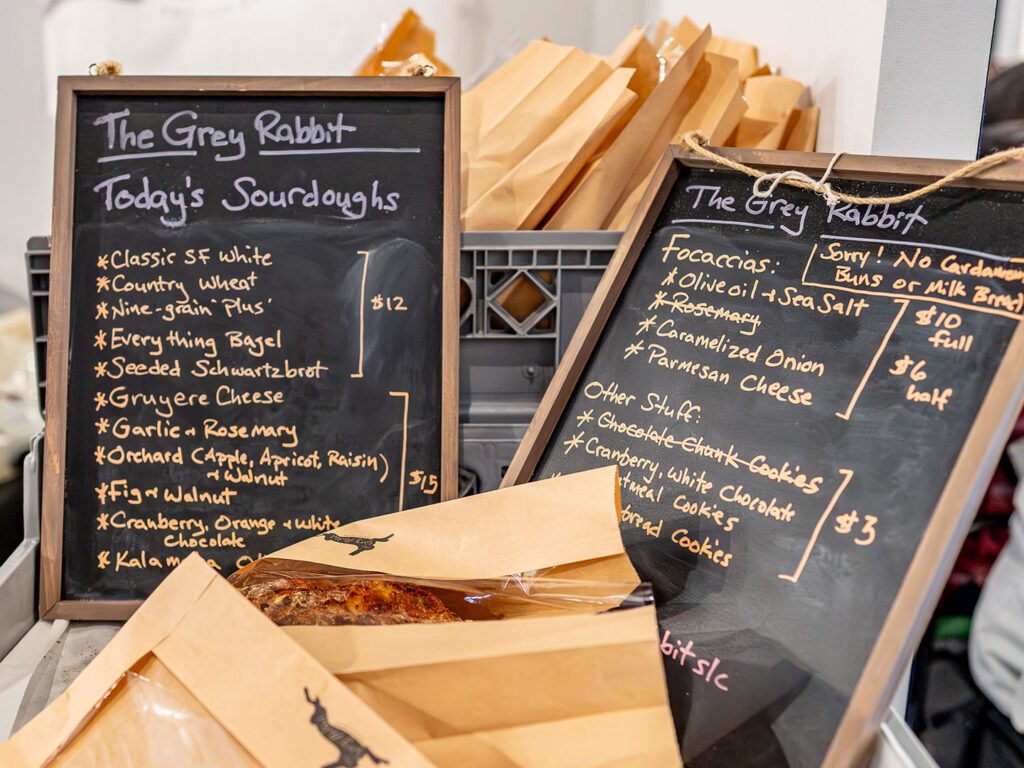 The Grey Rabbit
Today's Sourdoughs
*Classic SF White
*Country Wheat
*Nine-grain 'Plus'
*Everything Bagel
*Seeded Schwartzbrot
$12
*Gruyere Cheese
*Garlic + Rosemary
*Orchard (Apple, Apricot, Raisin)
+ Walnut
*Fig + Walnut
*Cranberry, Orange + White
Chocolate
*Kalamata
$15
The Grey Rabbit
Sorry! No Cardamom
Buns or Milk Bread
Focaccias:
*Olive oil + Sea Salt
*Rosemary
*Caramelized Onion
*Parmesan Cheese
$10
full
$6
half
Other Stuff:
*Chocolate Chunk Cookies
*Cranberry, White Chocolate
Cookies
Cookies
$3